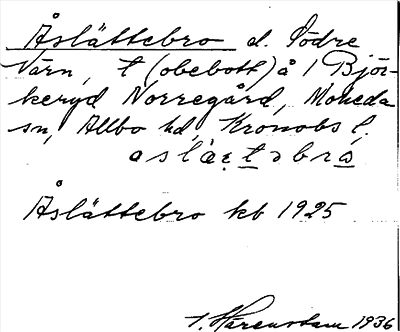 Åslättebro d. Södre
Värn, t (obebott) å 1 Björ-
keryd Norregård, Moheda
sn, Allbo hd, Kronobs l.
Åslättebro kb 1925
T. Härenstam 1936